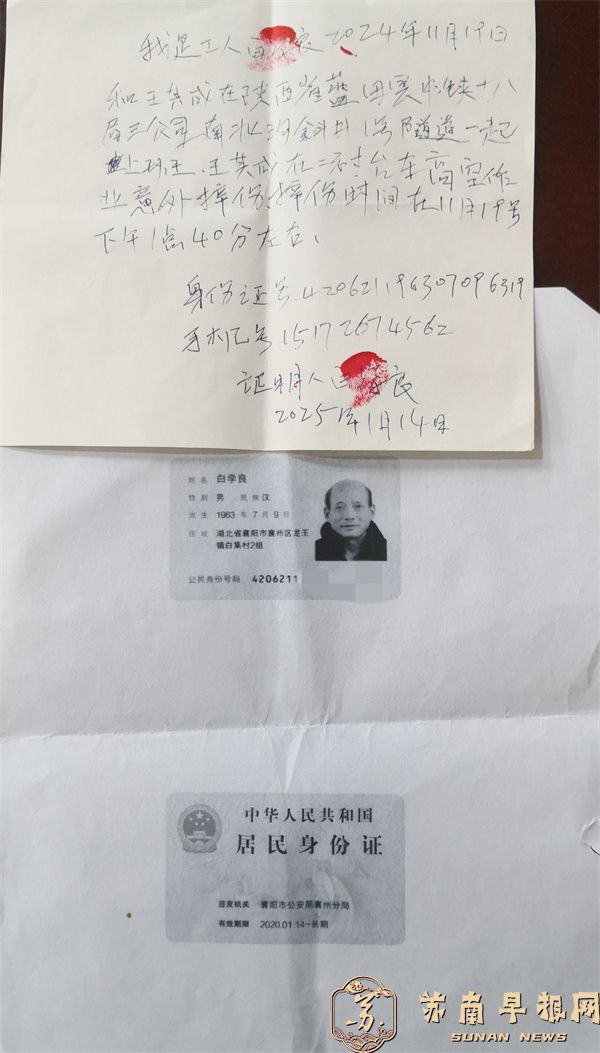 我是工人白学良2024年11月19日
和王其成在陕西省蓝田县中铁十八
局三公司南北沟斜井1号隧道一起
上班。王其成在二衬台车高空作
业意外摔伤摔伤时间在11月19号
下午1点40分左右、
身份证号420621196307096319
手机号15172674562
证明人白学良
2025年1月14日
姓名 白学良
性别 男 民族 汉
出生 1963 年 7 月 9 日
住址 湖北省襄阳市襄州区龙王
镇白集村2组
公民身份号码 4206211
中华人民共和国
居民身份证
签发机关 襄阳市公安局襄州分局
有效期限 2020.01.14-长期
苏南早报网
SUNAN NEWS